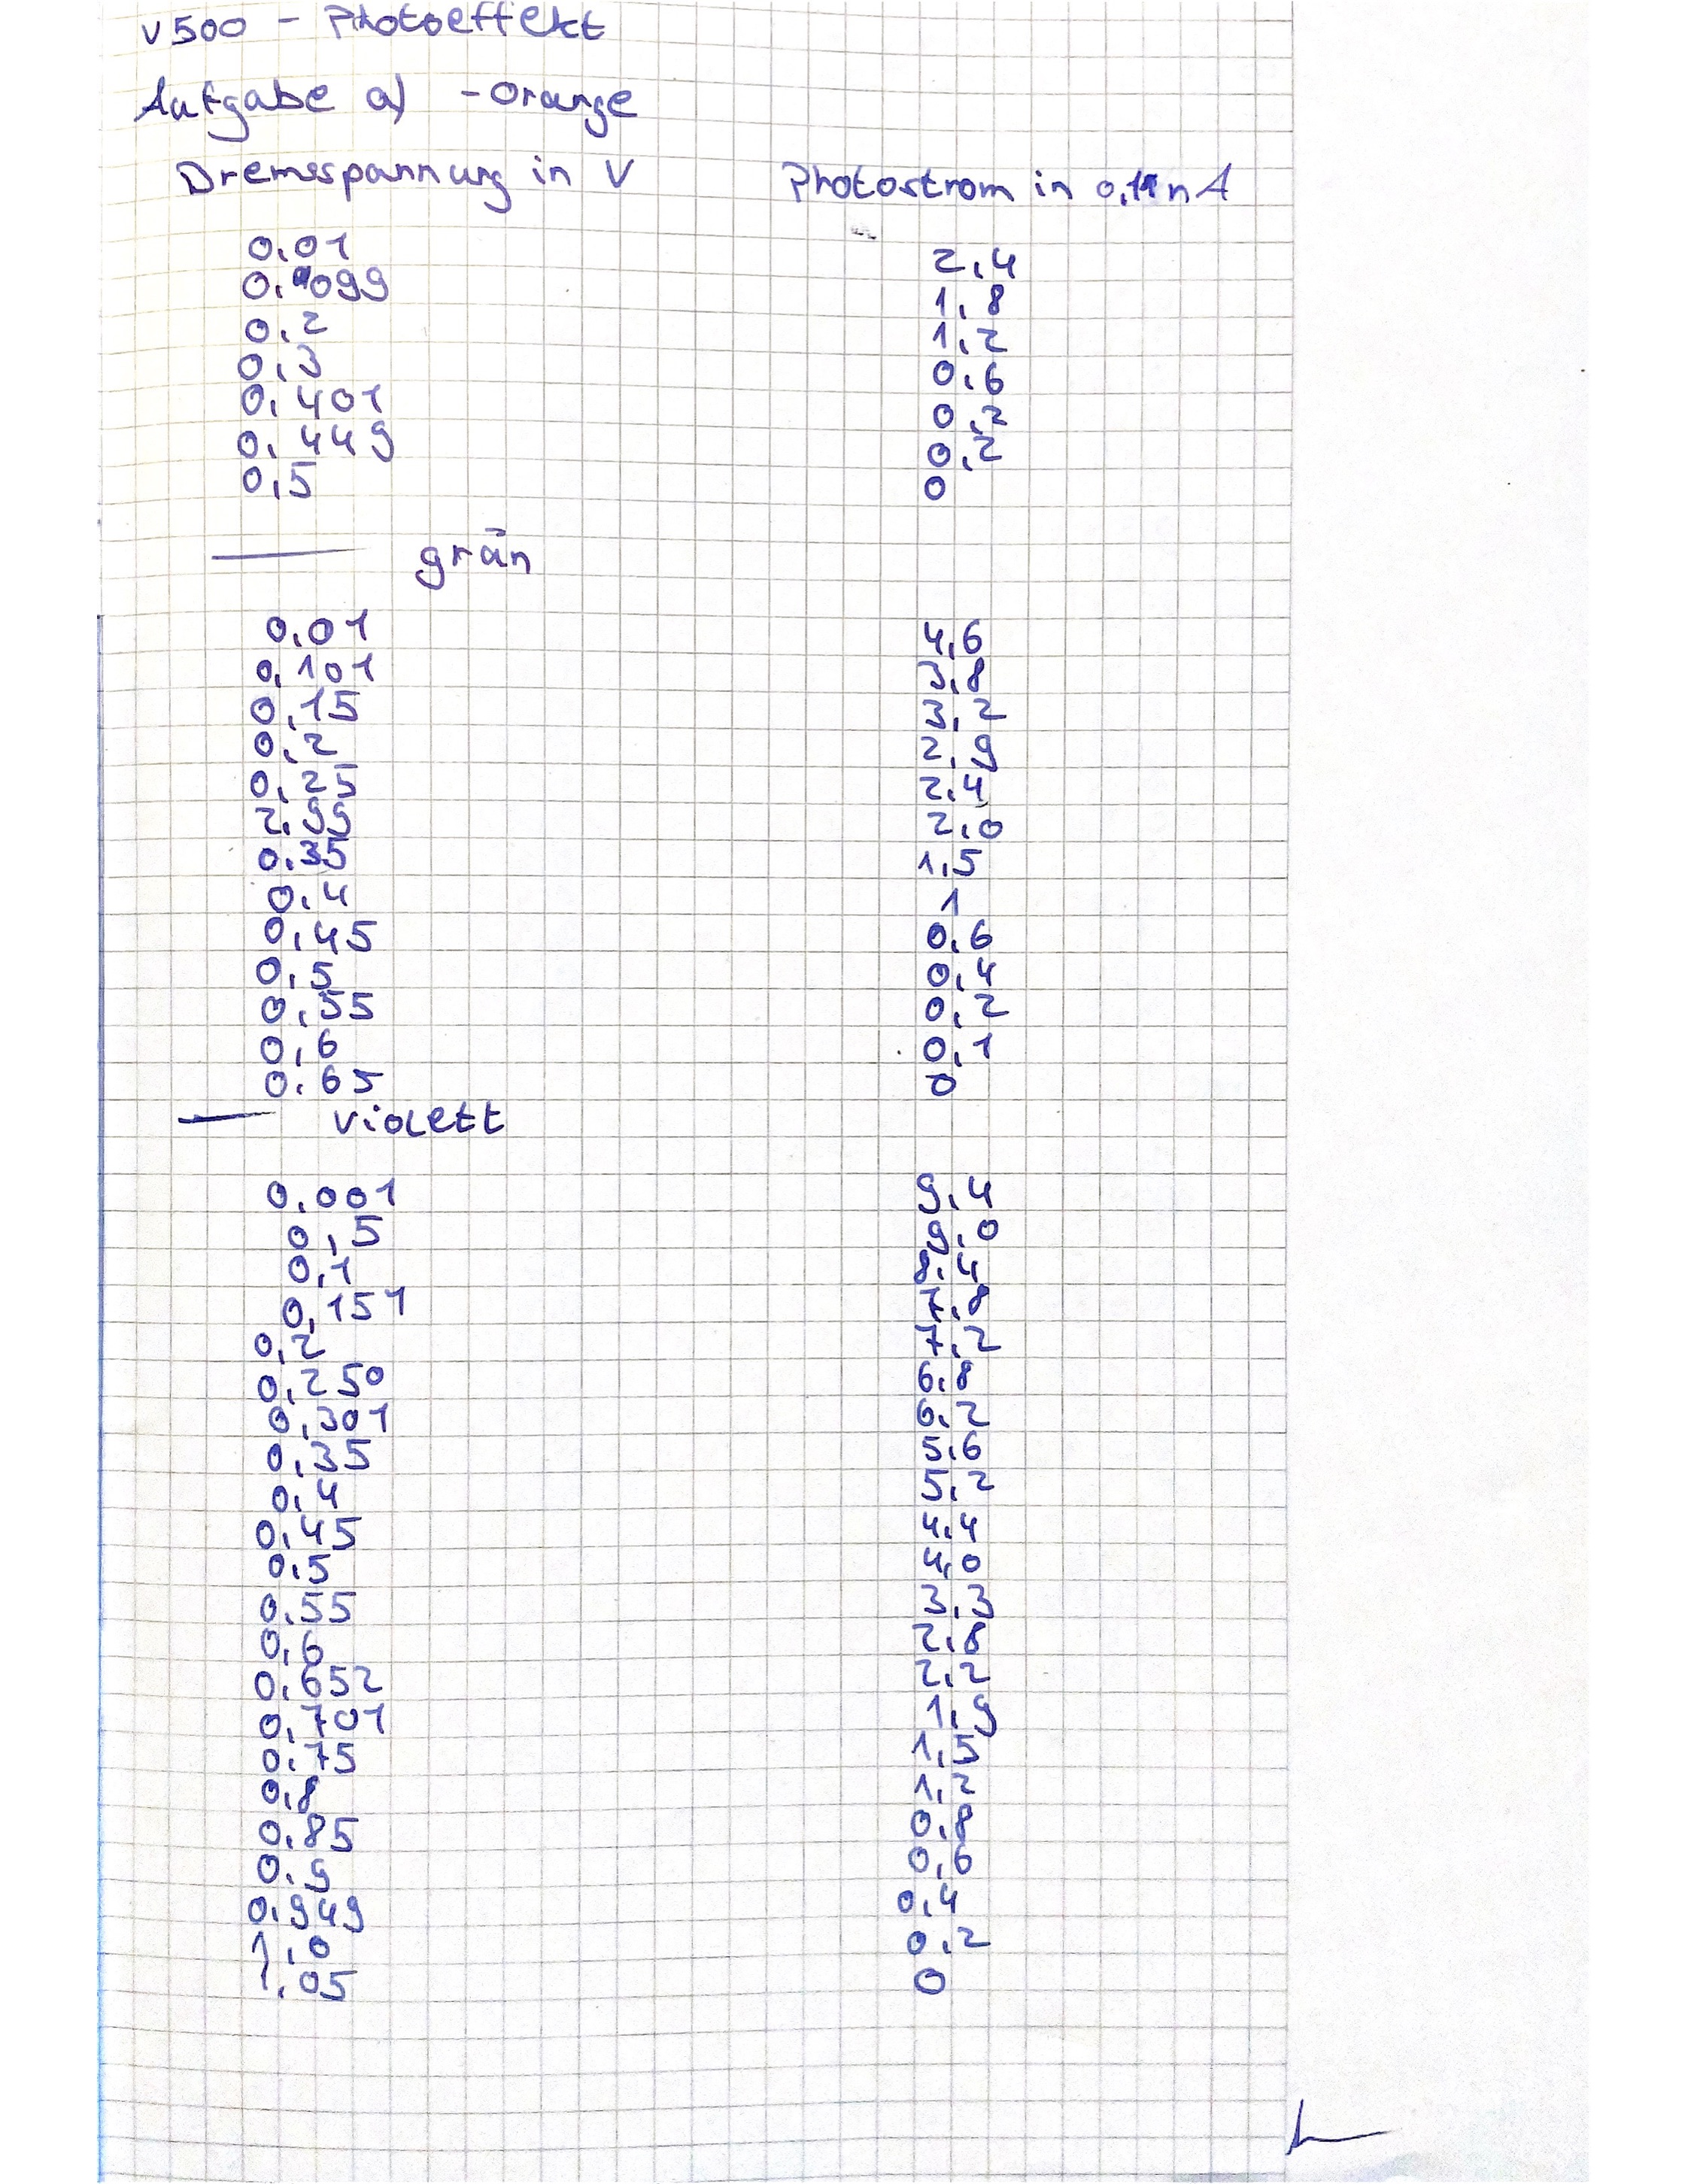 V500 - Photoeffekt
Aufgabe a) - Orange
Bremsspannung in V Photostrom in nA
0,01 2,4
0,099 1,8
0,2 1,2
0,3 0,6
0,401 0,2
0,449 0,2
0,5 0
grün
0,01 4,6
0,101 3,8
0,15 3,2
0,2 2,9
0,25 2,4
2,99 2,0
0,35 1,5
0,4 1
0,45 0,6
0,5 0,4
0,55 0,2
0,6 0,1
0,65 0
violett
0,001 9,4
0,5 9,0
0,1 8,4
0,151 7,8
0,2 7,2
0,250 6,8
0,301 6,2
0,35 5,6
0,4 5,2
0,45 4,4
0,5 4,0
0,55 3,3
0,6 2,8
0,652 2,2
0,701 1,9
0,75 1,5
0,8 1,2
0,85 0,8
0,9 0,6
0,949 0,4
1,0 0,2
1,05 0